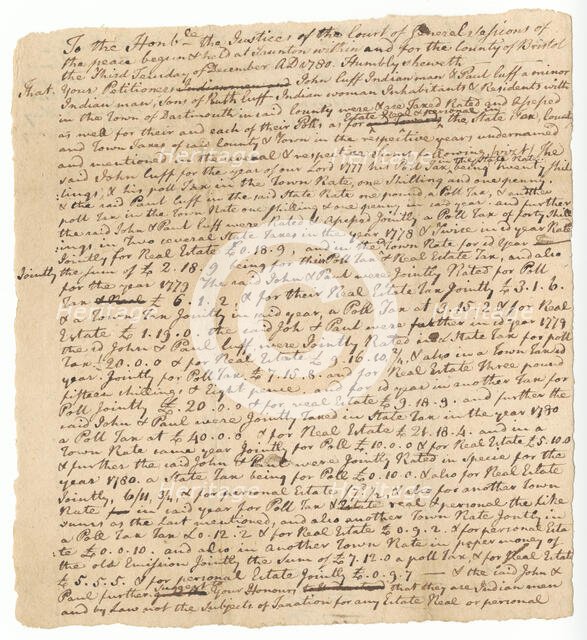 To the Honble the Justices of the Court of General sessions of
the peace begun & held at Taunton within and for the County of Bristol
the Third Tuesday of December AD 1780. Humbly sheweth
That Your Petitioners Indian man John Cuff Indian man & Paul Cuff a minor
Indian man, Sons of Ruth Cuff Indian woman Inhabitants & Residents with
in the Town of Dartmouth in said County were & are Taxed Rated and assessed
Estate Real & personal in
as well for their and each of their Polls as for the State Tax, County
and Town Taxes of said County & Town in the respective years undernamed
and mentioned & the several & respective sums following viz. The
in the State Rate
said John Cuff for the year of our Lord 1777 his Poll Tax being twenty shil
lings, & his poll Tax in the Town Rate, one shilling and one penny
& the said Paul Cuff in the said State Rate one pound a Poll Tax, & another
poll Tax in the Town Rate one shilling & one penny in said year and further
the said John & Paul Cuff were Rated & assessed Jointly a Poll Tax of forty shill
ings in Two several State Taxes in the year 1778 & Twice in sd year Rated
Jointly for Real Estate £0.18.9, and in the Town Rate for sd Year
Jointly the sum of £2.18.9 being for their Poll Tax & Real Estate Tax, and also
for the year 1779 The said John & Paul were Jointly Rated for Poll
Tax & Real £6.1.2, & for their Real Estate Tax Jointly £3.1.6.
& a Town Tax Jointly in said year, a Poll Tax at £1.15.2 & for Real
Estate £1.19.0. the said Joh & Paul were further in sd year 1779
the sd John & Paul Cuff were Jointly Rated in a State Tax for poll
Tax £20.0.0 & for Real Estate £9.16.10½ & also in a Town Tax in sd
year Jointly for Poll Tax £7.15.8. and for Real Estate Three pound
fifteen shillings & Eight pence, and for sd year in another Tax for
Poll Jointly £20.0.0 & for real Estate £9.18.9. and further the
said John & Paul were Jointly Taxed in State Tax in the year 1780
a Poll Tax at £40.0.0 & for Real Estate £21.18.4. and in a
Town Rate same year Jointly for Poll £10.0.0 & for Real Estate £5.10.0
& further the said John & Paul were Jointly Rated in specie for the
year 1780. a State Tax being for Poll £0.10.0 & also for Real Estate
Jointly, 6/11, 3/4, & for personal Estate & also for another Town
Rate in said year for Poll Tax & Estate real & personal the like
sums as the last mentioned, and also another Town Rate Jointly, in
a Poll Tax £0.12.2 & for Real Estate £0.9.2. & for personal Esta
te £0.0.10. and also in another Town Rate in paper money of
the old Emission Jointly the Sum of £7.12.0 a poll Tax, & for Real Estate
£5.5.5. & for personal Estate Jointly £0.9.7 & the said John &
Paul further suggest to Your Honours that they are Indian men
and by Law not the Subjects of Taxation for any Estate Real or personal
Heritage